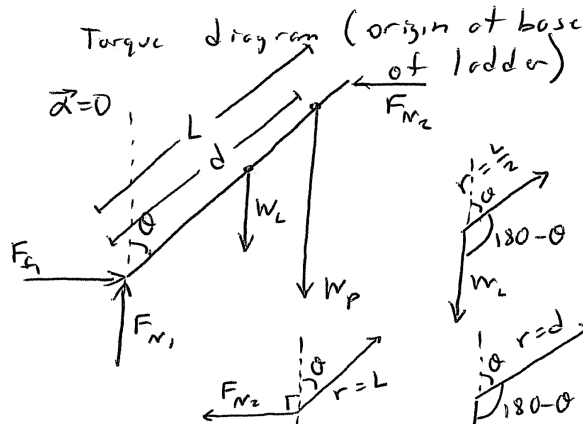 Torque diagram (origin at base
of ladder)
α⃗=0⃗
F_N₂
L
d
θ
W_L
F_f₁
F_N₁
W_P
r=L/2
θ
180-θ
W_L
F_N₂
θ
r=L
r=d
θ
180-θ